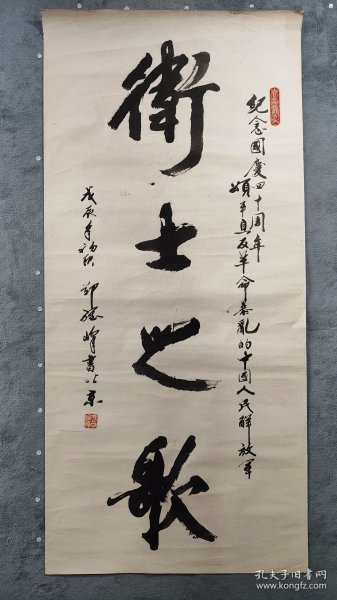 紀念國慶四十周年
頌平息反革命暴亂的中國人民解放軍
衛士之歌
戊辰年初秋 鄧經峰書
孔夫子旧书网
www.kongfz.com